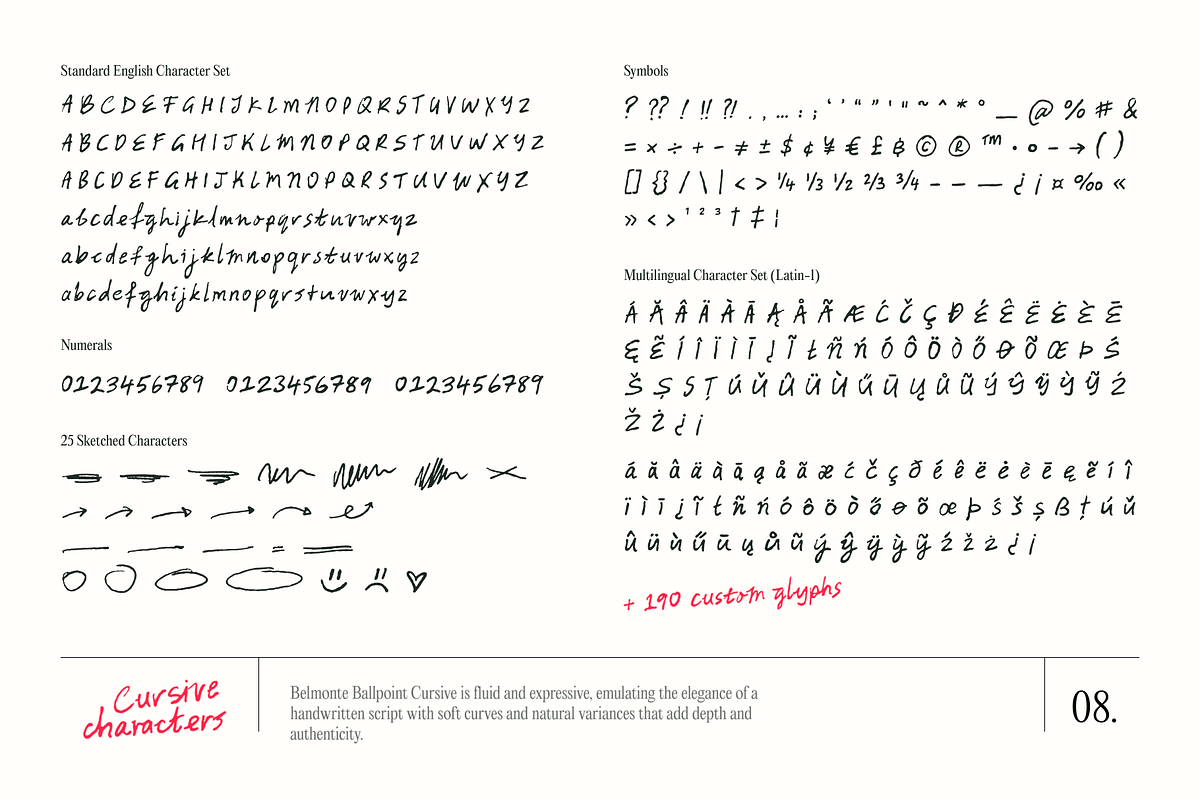 Standard English Character Set
A B C D E F G H I J K L M N O P Q R S T U V W X Y Z
A B C D E F G H I J K L M N O P Q R S T U V W X Y Z
A B C D E F G H I J K L M N O P Q R S T U V W X Y Z
a b c d e f g h i j k l m n o p q r s t u v w x y z
a b c d e f g h i j k l m n o p q r s t u v w x y z
a b c d e f g h i j k l m n o p q r s t u v w x y z
Numerals
0123456789 0123456789 0123456789
25 Sketched Characters
Symbols
? ?? ! !! ?! . , … : ; ‘ ’ “ ” ' " ~ ^ * ° _ @ % # &
= × ÷ + - ≠ ± $ ¢ ¥ € £ ฿ © ® ™ · • – → ( )
[] {} / \ | < > ¼ ⅓ ½ ⅔ ¾ - – — ¿ ¡ ¤ ‰ «
» < > ¹ ² ³ † ‡ ¦
Multilingual Character Set (Latin-1)
Á Ă Â Ä À Ā Ą Å Ã Æ Ć Č Ç Đ É Ê Ë Ė È Ē
Ę Ẽ Í Î Ï Ì Ī Į Ĩ Ł Ñ Ń Ó Ô Ö Ò Ő Ø Õ Œ Þ Ś
Š Ş S Ț Ú Ŭ Û Ü Ù Ű Ū Ų Ů Ũ Ý Ŷ Ÿ Ỳ Ỹ Ź
Ž Ż ¿ ¡
á ă â ä à ā ą å ã æ ć č ç ð é ê ë ė è ē ę ẽ í î
ï ì ī į ĩ ł ñ ń ó ô ö ò ő ø õ œ þ ś š ş ß ț ú ŭ
û ü ù ű ū ų ů ũ ý ŷ ÿ ỳ ỹ ź ž ż ¿ ¡
+ 190 custom glyphs
Cursive
characters
Belmonte Ballpoint Cursive is fluid and expressive, emulating the elegance of a
handwritten script with soft curves and natural variances that add depth and
authenticity.
08.